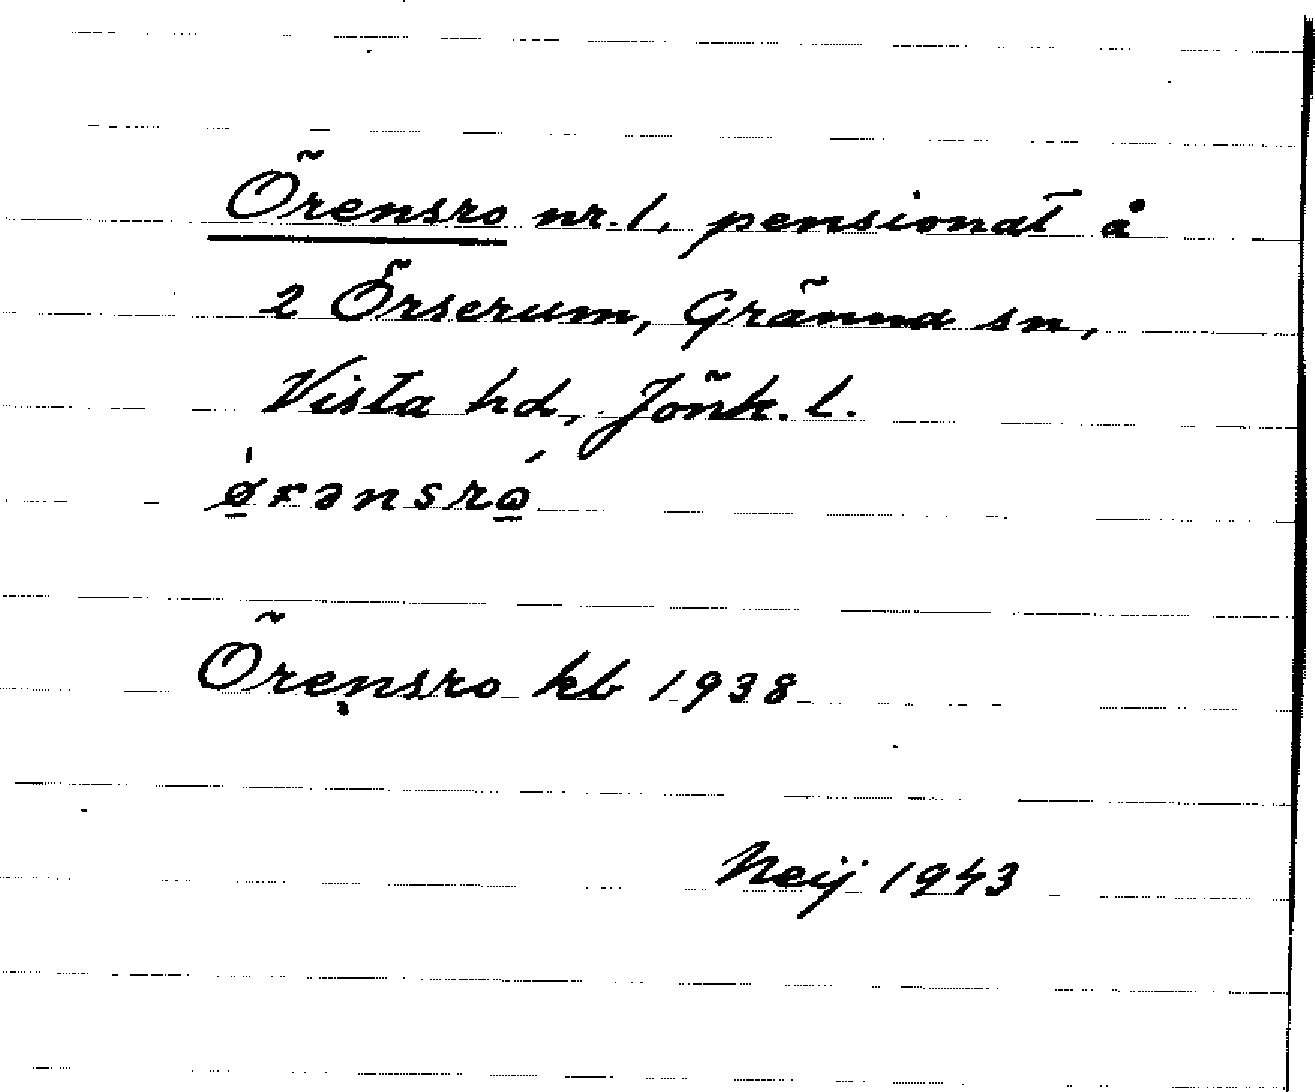 Örensro nr. 1, pensionat å
2 Örserum, Gränna sn,
Vista hd, Jönk. l.
Örensro kb 1938
Neij 1943